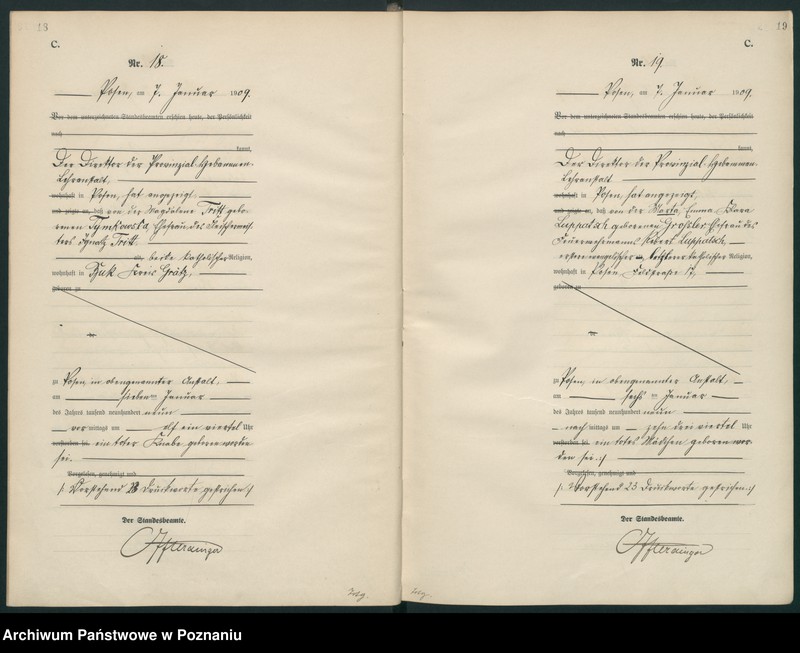 18
C.
Nr. 18.
Posen, am 7. Januar 1909.
Vor dem unterzeichneten Standesbeamten erschien heute, der Persönlichkeit
nach
kannt,
Der Direktor der Provinzial-Hebammen-
Lehranstalt
wohnhaft in Posen, hat angezeigt
und zeigte an, daß von der Magdalene Tritt gebo-
renen Tymkowska, Ehefrau des
Ignatz Tritt
beide katholischer Religion,
wohnhaft in Buk Kreis Grätz,
geboren zu
zu Posen, in obengenannter Anstalt,
am sieben ten Januar
des Jahres tausend neunhundert neun
vor mittags um elf ein viertel Uhr
verstorben sei. ein toter Knabe geboren worden
sei.
Vorgelesen, genehmigt und
/: Vorstehend Druckworte gestrichen :/
Der Standesbeamte.
19
C.
Nr. 19.
Posen, am 7. Januar 1909.
Vor dem unterzeichneten Standesbeamten erschien heute, der Persönlichkeit
nach
kannt,
Der Direktor der Provinzial-Hebammen-
Lehranstalt
wohnhaft in Posen, hat angezeigt,
und zeigte an, daß von der Marta, Emma Klara
Luppatsch geborenen Großler, Ehefrau des
Feuerwehrmanns Robert Luppatsch,
erstere evangelischer, letzterer katholischer Religion,
wohnhaft in Posen
geboren zu
zu Posen, in obengenannter Anstalt,
am sechs ten Januar
des Jahres tausend neunhundert neun
nach mittags um zehn drei viertel Uhr
verstorben sei. ein totes Mädchen geboren wor-
den sei. :/
Vorgelesen, genehmigt und
/: Vorstehend 23 Druckworte gestrichen. :/
Der Standesbeamte.
Archiwum Państwowe w Poznaniu